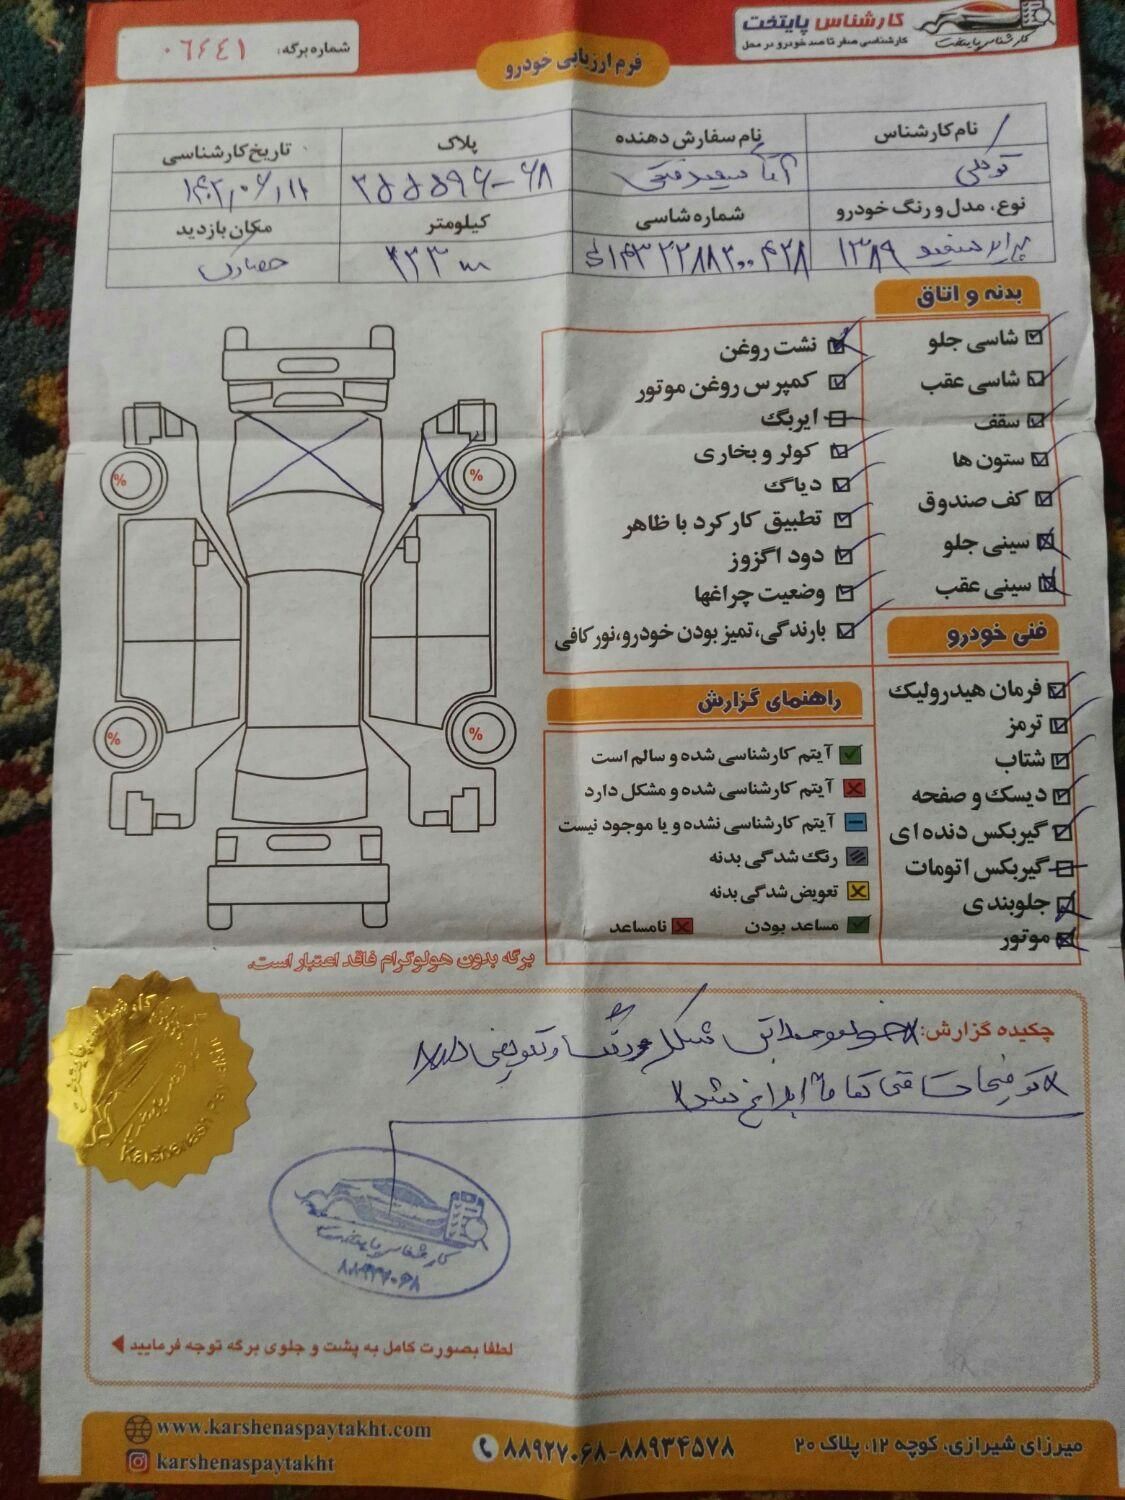 کارشناس پایتخت
کارشناسی صفر تا صد خودرو در محل
کارشناس پایتخت
شماره برگه: ۰۶۶۴۱
فرم ارزیابی خودرو
نام کارشناس
نام سفارش دهنده
پلاک
تاریخ کارشناسی
توکلی
نوع، مدل و رنگ خودرو
شماره شاسی
کیلومتر
مکان بازدید
پراید سفید ۱۳۸۹
۳۳۳
حصارک
بدنه و اتاق
شاسی جلو
شاسی عقب
سقف
ستون ها
کف صندوق
سینی جلو
سینی عقب
فنی خودرو
فرمان هیدرولیک
ترمز
شتاب
دیسک و صفحه
گیربکس دنده ای
گیربکس اتومات
جلوبندی
موتور
نشت روغن
کمپرس روغن موتور
ایربگ
کولر و بخاری
دیاگ
تطبیق کارکرد با ظاهر
دود اگزوز
وضعیت چراغها
بارندگی،تمیز بودن خودرو،نور کافی
راهنمای گزارش
آیتم کارشناسی شده و سالم است
آیتم کارشناسی شده و مشکل دارد
آیتم کارشناسی نشده و یا موجود نیست
رنگ شدگی بدنه
تعویض شدگی بدنه
مساعد بودن
نامساعد
%
%
%
%
برگه بدون هولوگرام فاقد اعتبار است.
چکیده گزارش:
توضیحات فنی تماماً ابلاغ شد
کارشناس پایتخت
۸۸۹۲۷۰۶۸
لطفا بصورت کامل به پشت و جلوی برگه توجه فرمایید
میرزای شیرازی، کوچه ۱۲، پلاک ۲۰
۸۸۹۲۷۰۶۸-۸۸۹۳۴۵۷۸
www.karshenaspaytakht.com
karshenaspaytakht